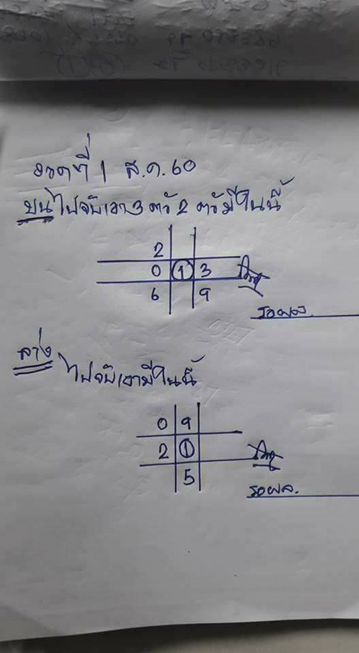 งวดที่ 1 ส.ค. 60
บน ไปจับเอา 3 ตัว 2 ตัวมีในนี้
2
0 1 3
6 9
รอผล.
ล่าง ไปจับเอามีในนี้
0 9
2 1
5
รอผล.